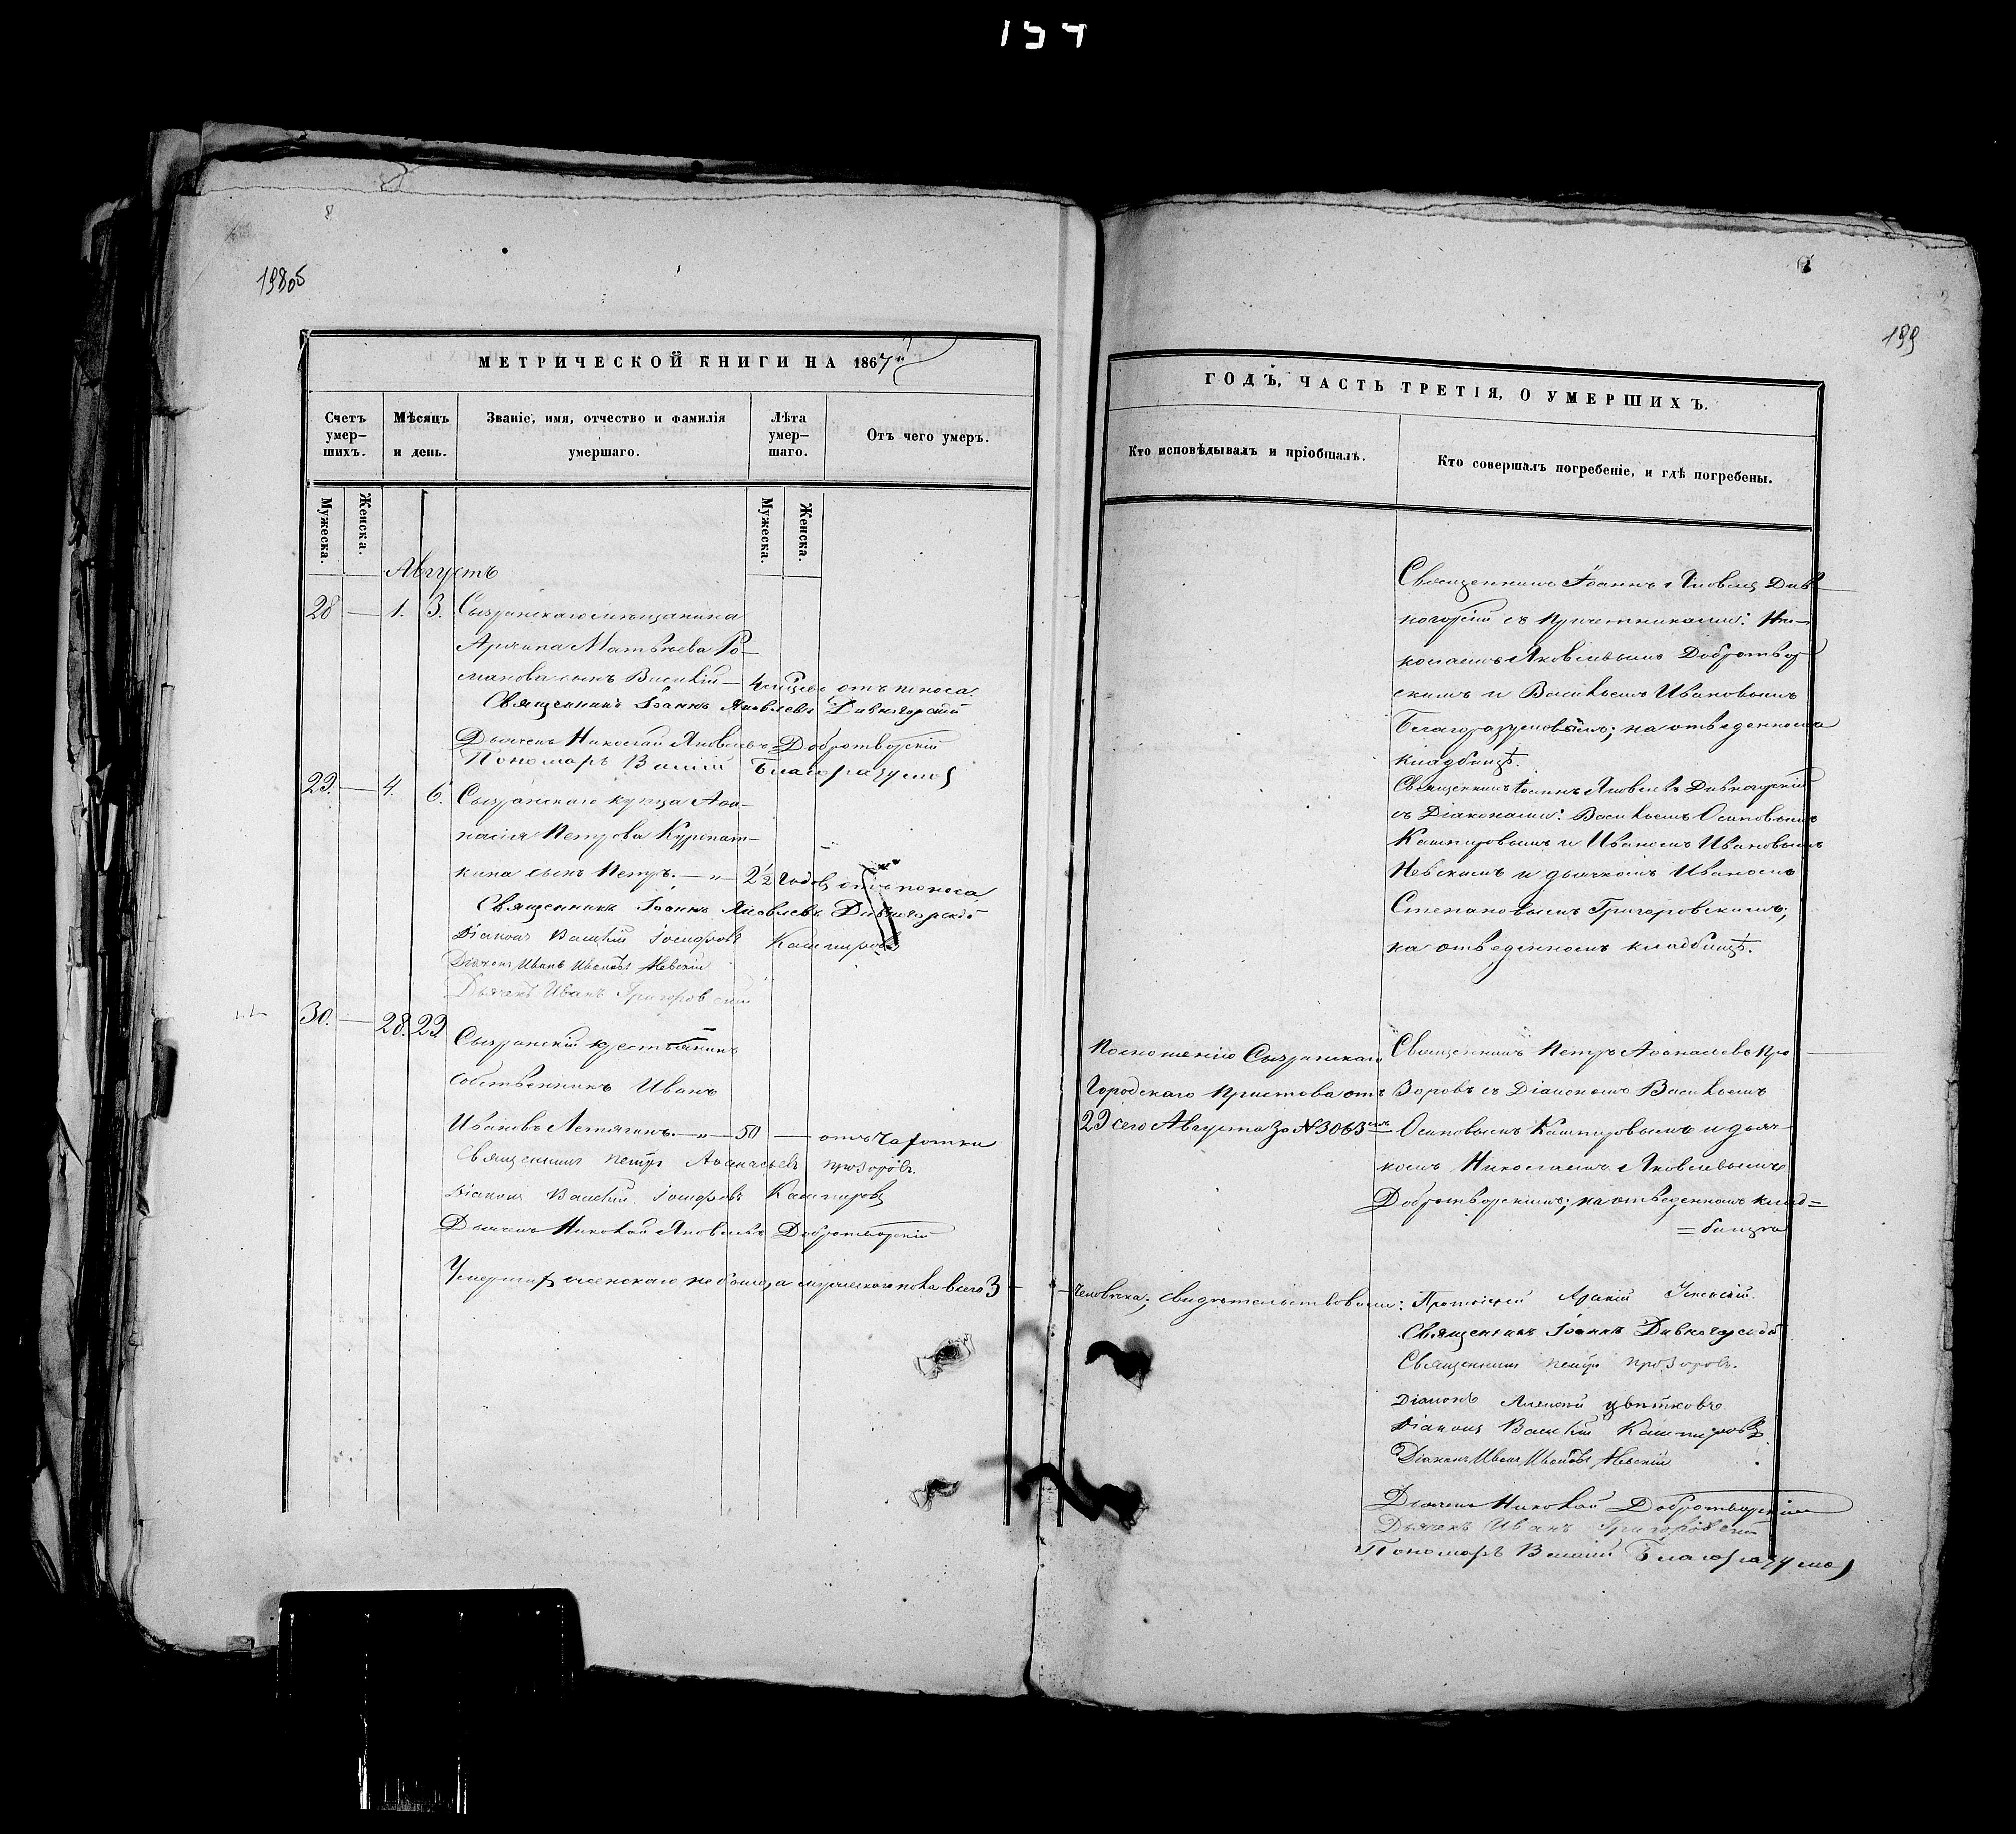 154
198об
199
МЕТРИЧЕСКОЙ КНИГИ НА 1867й
Счетъ умер-шихъ.
Мѣсяцъ и день.
Званіе, имя, отчество и фамилія умершаго.
Лѣта умер-шаго.
Отъ чего умеръ.
Мужеска.
Женска.
Мужеска.
Женска.
Августъ
28 — 1. 3. Сызранскаго мѣщанина
Архипа Матвѣева Ро-
манова сынъ Василій — 4 мѣсяц. отъ поноса.
Священникъ Іоаннъ Яковлевъ Дивногорскій
Дьячекъ Николай Яковлевъ Добротворскій
Пономарь Василій Благоразумов
29. — 4. 6. Сызранскаго купца Аѳа-
насія Петрова Куропат-
кина сынъ Петръ. — „ — 2½ годов. отъ поноса.
Священникъ Іоаннъ Яковлевъ Дивногорскій
Діаконъ Василій Іосифовъ Кашпировъ
Діаконъ Иванъ Ивановъ Невскій
Дьячекъ Иванъ Григоровскій
30. — 28. 29 Сызранскій крестьянинъ
собственникъ Иванъ
Ивановъ Летягинъ. — „ — 50 — отъ чахотки
Священникъ Петръ Аѳанасьевъ Прозоровъ.
Діаконъ Василій Іосифовъ Кашпировъ
Дьячекъ Николай Яковлевъ Добротворскій
Умершихъ женскаго не было, а мужескаго пола всего 3 —
ГОДЪ, ЧАСТЬ ТРЕТІЯ, О УМЕРШИХЪ.
Кто исповѣдывалъ и пріобщалъ.
Кто совершалъ погребеніе, и гдѣ погребены.
Священникъ Іоаннъ Яковлев Див-
ногорскій съ причетниками: Ни-
колаемъ Яковлевымъ Добротвор-
скимъ и Васильемъ Ивановымъ
Благоразумовымъ; на отведенномъ
кладбищѣ.
Священникъ Іоаннъ Яковлевъ Дивногорскій
съ Діаконами: Васильемъ Осиповымъ
Кашпировымъ и Иваномъ Ивановымъ
Невскимъ и дьячкомъ Иваномъ
Степановымъ Григоровскимъ;
на отведенномъ кладбищѣ.
По сношенію Сызранскаго
Городскаго Пристава отъ
29 сего Августа за № 3063мъ
Священникъ Петръ Аѳанасьевъ Про
зоровъ съ Діакономъ Васильемъ
Осиповымъ Кашпировымъ и дьяч-
комъ Николаемъ Яковлевымъ
Добротворскимъ; на отведенномъ клад=
=бищѣ
— человѣка; свидѣтельствовали: Протоіерей Успенскій.
Священникъ Іоаннъ Дивногорскій
Священникъ Петръ Прозоровъ.
Діаконъ Алексѣй Цвѣтковъ
Діаконъ Василій Кашпировъ.
Діаконъ Иванъ Ивановъ Невскій
Дьячекъ Николай Добротворскій
Дьячекъ Иванъ Григоровскій
Пономарь Василій Благоразумов